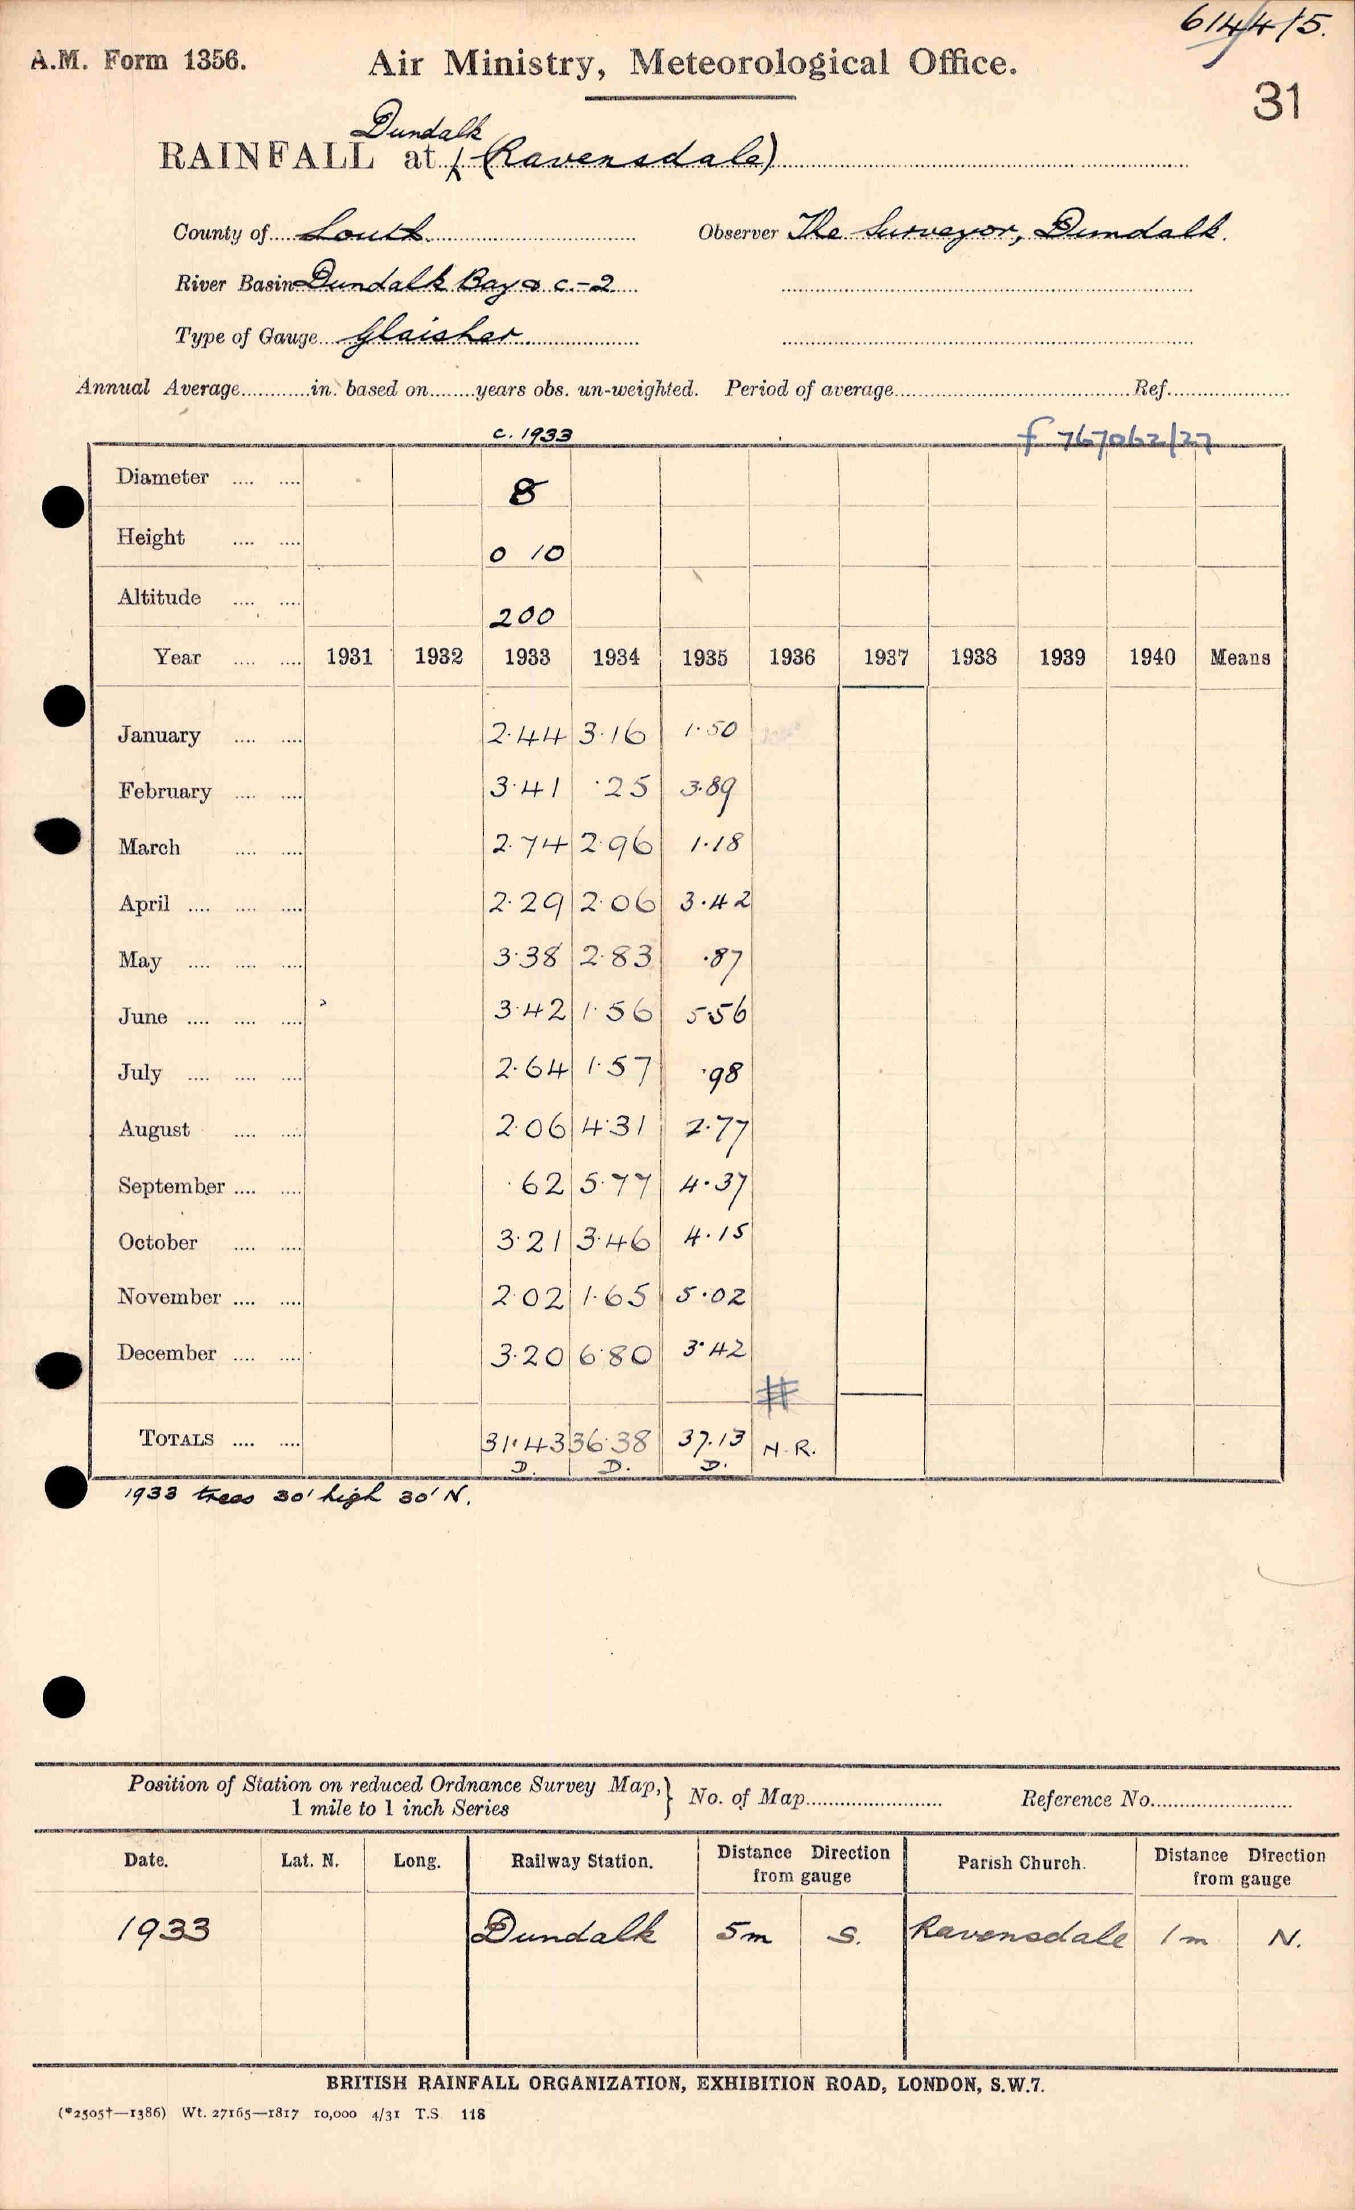 6144/5.
A.M. Form 1356. Air Ministry, Meteorological Office.
31
Dundalk
RAINFALL at (Ravensdale)
County of Louth. Observer The Surveyor, Dundalk.
River Basin Dundalk Bay & c.-2
Type of Gauge Glaisher.
Annual Average............in. based on........years obs. un-weighted. Period of average............Ref............
c. 1933 f 767062/27
Diameter .... .... 8
Height .... .... 0 10
Altitude .... .... 200
Year .... .... 1931 1932 1933 1934 1935 1936 1937 1938 1939 1940 Means
January .... .... 2.44 3.16 1.50
February .... .... 3.41 .25 3.89
March .... .... 2.74 2.96 1.18
April .... .... .... 2.29 2.06 3.42
May .... .... .... 3.38 2.83 .87
June .... .... .... 3.42 1.56 5.56
July .... .... .... 2.64 1.57 .98
August .... .... 2.06 4.31 2.77
September .... .... .62 5.77 4.37
October .... .... 3.21 3.46 4.15
November .... .... 2.02 1.65 5.02
December .... .... 3.20 6.80 3.42
#
TOTALS .... .... 31.43 36.38 37.13 N.R.
D. D. D.
1933 trees 30' high 30' N.
Position of Station on reduced Ordnance Survey Map, } No. of Map............ Reference No............
1 mile to 1 inch Series
Date. Lat. N. Long. Railway Station. Distance Direction from gauge Parish Church. Distance Direction from gauge
1933 Dundalk 5m S. Ravensdale 1m N.
BRITISH RAINFALL ORGANIZATION, EXHIBITION ROAD, LONDON, S.W.7.
(*2505†—1386) Wt. 27165—1817 10,000 4/31 T.S. 118